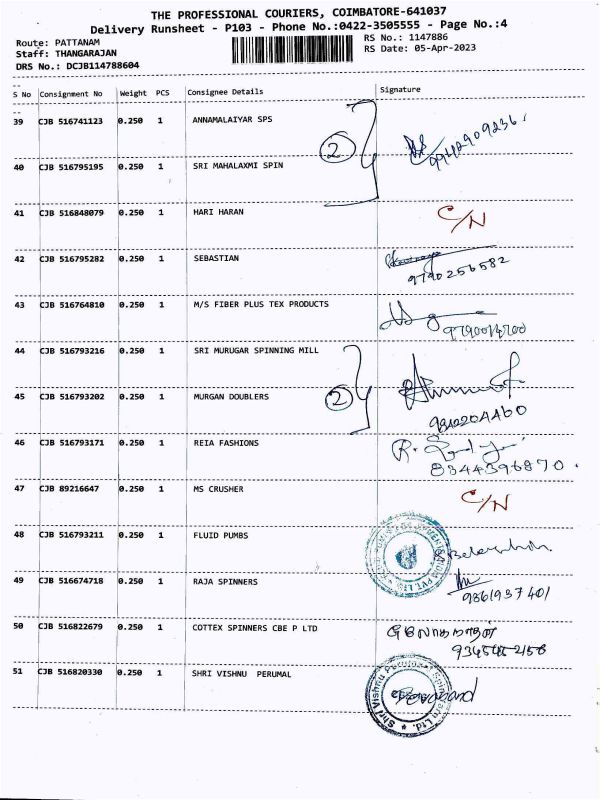 THE PROFESSIONAL COURIERS, COIMBATORE-641037
Delivery Runsheet - P103 - Phone No.:0422-3505555 - Page No.:4
Route: PATTANAM
RS No.: 1147886
Staff: THANGARAJAN
RS Date: 05-Apr-2023
DRS No.: DCJB114788604
S No Consignment No Weight PCS Consignee Details Signature
39 CJB 516741123 0.250 1 ANNAMALAIYAR SPS
2
9942909236.
40 CJB 516795195 0.250 1 SRI MAHALAXMI SPIN
41 CJB 516848079 0.250 1 HARI HARAN C/N
42 CJB 516795282 0.250 1 SEBASTIAN
9790256582
43 CJB 516764810 0.250 1 M/S FIBER PLUS TEX PRODUCTS
44 CJB 516793216 0.250 1 SRI MURUGAR SPINNING MILL
2
45 CJB 516793202 0.250 1 MURGAN DOUBLERS
46 CJB 516793171 0.250 1 REIA FASHIONS
8344396870.
47 CJB 89216647 0.250 1 MS CRUSHER C/N
48 CJB 516793211 0.250 1 FLUID PUMBS
49 CJB 516674718 0.250 1 RAJA SPINNERS
9861937401
50 CJB 516822679 0.250 1 COTTEX SPINNERS CBE P LTD
51 CJB 516820330 0.250 1 SHRI VISHNU PERUMAL